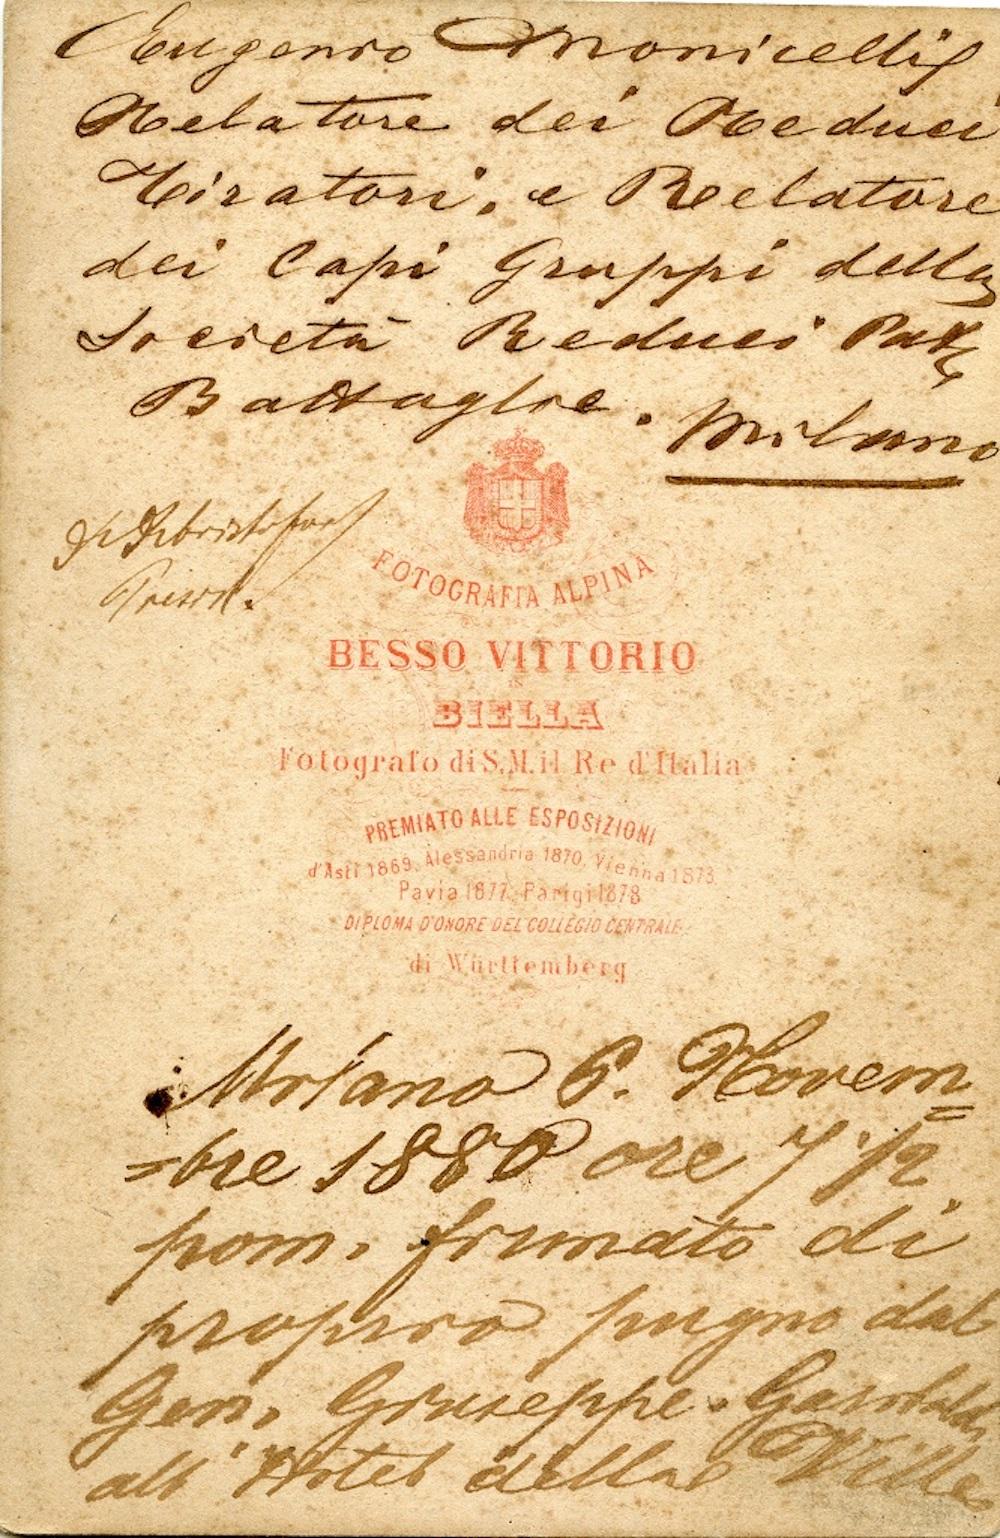 Eugenio Monicelli
Relatore dei Reduci
Tiratori, e Relatore
dei Capi Gruppi della
Società Reduci Pat.
Battaglie. Milano
Presid.
FOTOGRAFIA ALPINA
BESSO VITTORIO
IN
BIELLA
Fotografo di S.M. il Re d'Italia
PREMIATO ALLE ESPOSIZIONI
d'Asti 1869, Alessandria 1870, Vienna 1873,
Pavia 1877, Parigi 1878
DIPLOMA D'ONORE DEL COLLEGIO CENTRALE
di Württemberg
Milano 6. Novem=
=bre 1880 ore 7 1/2
pom. firmato di
proprio pugno dal
Gen. Giuseppe Garibaldi
all'Hotel della Ville